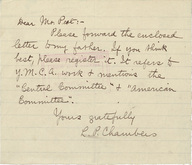 Dear Mr. Peet:-
Please forward the enclosed
letter to my father. If you think
best, please register it. It refers to
Y.M.C.A. work & mentions the
"Central Committee" & "American
Committee".
Yours gratefully
L. P. Chambers